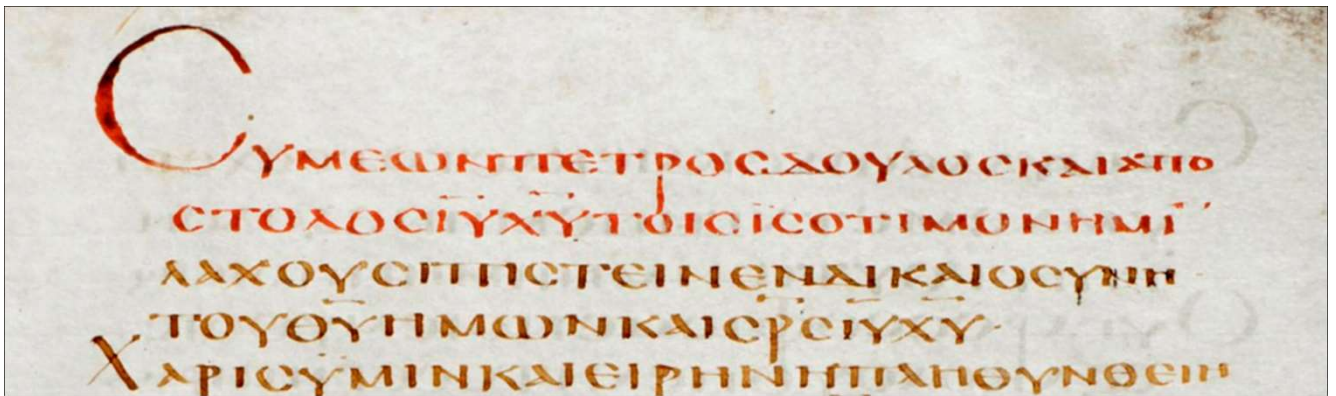 ϹΥΜΕΩΝΠΕΤΡΟϹΔΟΥΛΟϹΚΑΙΑΠΟ
ϹΤΟΛΟϹΙ̅Υ̅Χ̅Υ̅ΤΟΙϹΪϹΟΤΙΜΟΝΗΜΙ̅
ΛΑΧΟΥϹΙΠΙϹΤΕΙΝΕΝΔΙΚΑΙΟϹΥΝΗ
ΤΟΥΘ̅Υ̅ΗΜΩΝΚΑΙϹ̅Ρ̅ϹΙ̅Υ̅Χ̅Υ̅·
ΧΑΡΙϹΫΜΙΝΚΑΙΕΙΡΗΝΗΠΛΗΘΥΝΘΕΙΗ